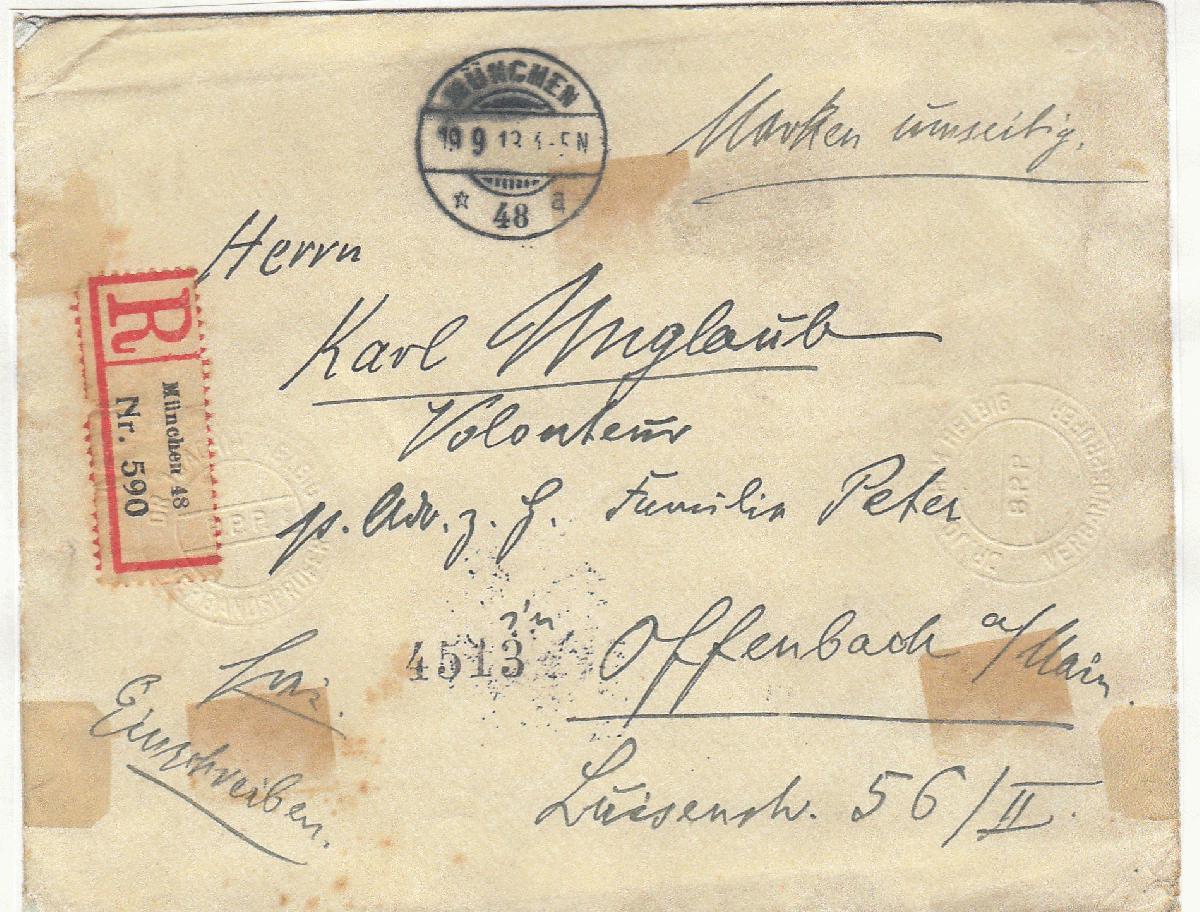 MÜNCHEN
19 9 13 4-5N
48 a
Marken umseitig.
Herrn
Karl Unglaub
Volonteur
p. Adr. z. H. Familie Peter
in Offenbach a/Main
4513
Luisenstr. 56/II.
Einschreiben.
R
München 48
Nr. 590
B.P.P.
HELBIG
B.P.P.
VERBANDSPRÜFER